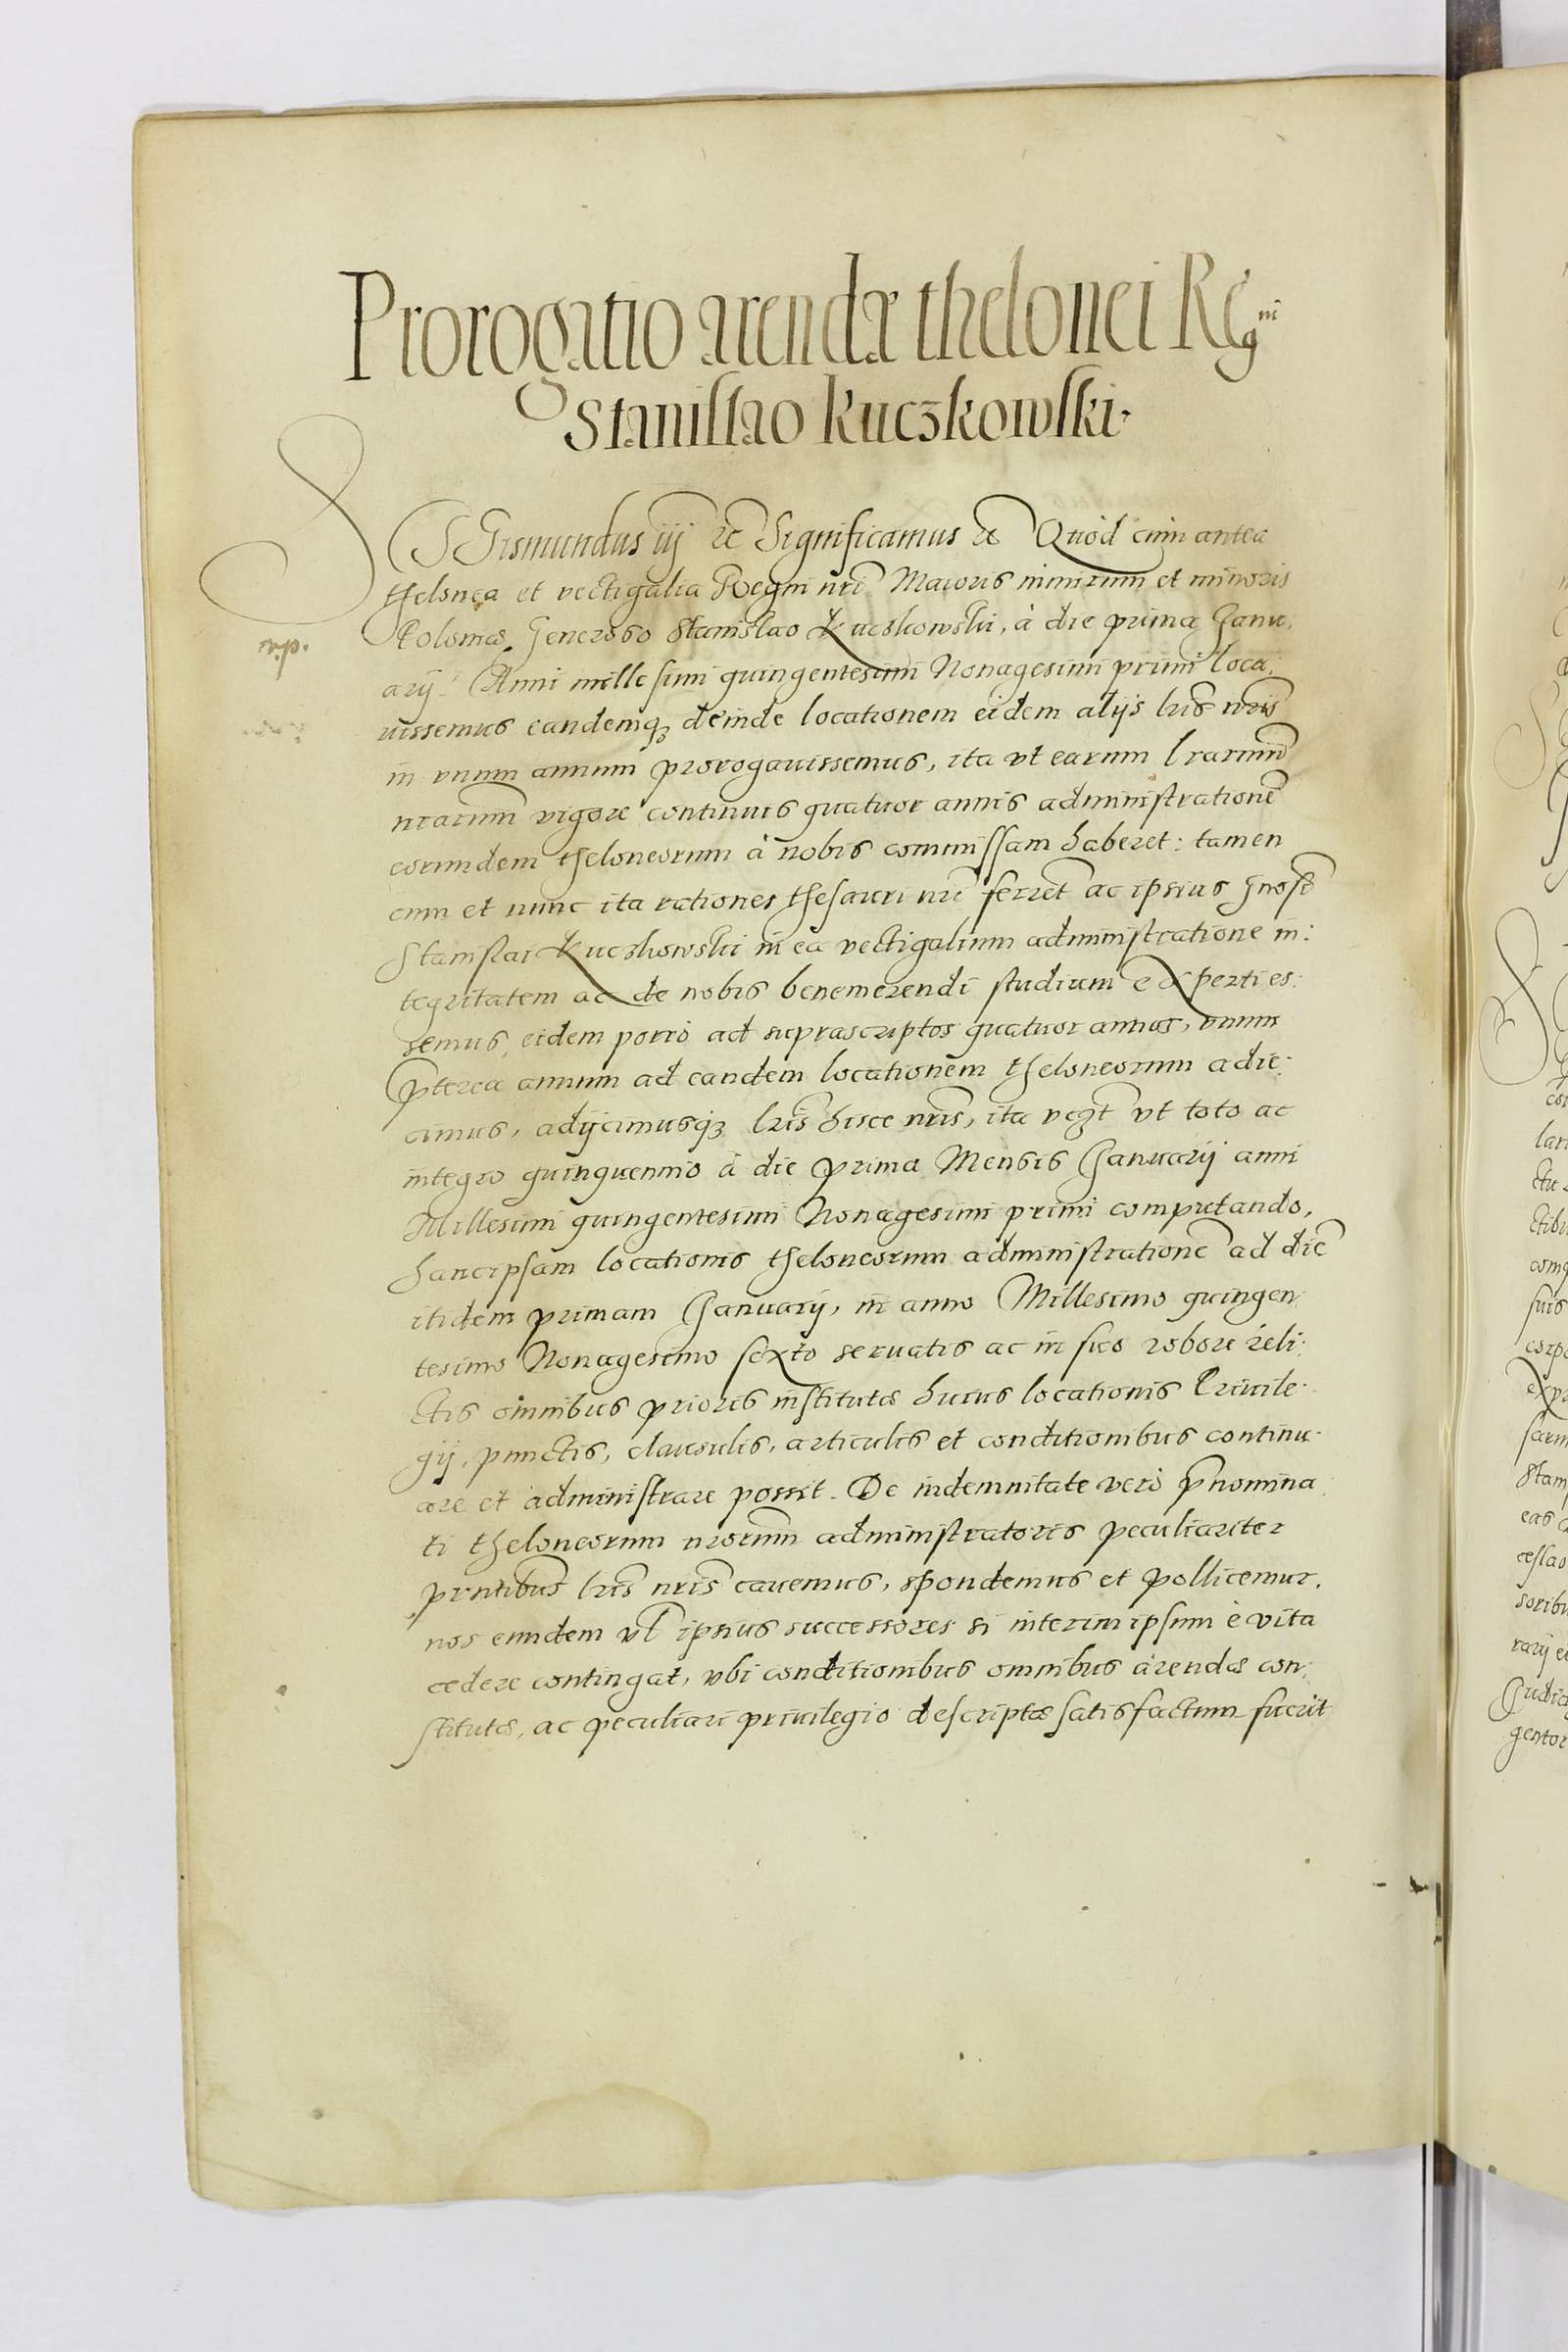 Prorogatio arendæ thelonei Reg^ni
Stanislao Kuczkowski.
SIGismundus iij etc Significamus etc Quòd cùm antea
thelonea et vectigalia Regni nri Maioris nimirum et minoris
Poloniæ, Generoso Stanislao Kuczkowski, à die prima Janu:
arij Anni millesimi quingentesimi Nonagesimi primi loca:
uissemus eandemq; deinde locationem eidem alijs lris nris
in vnum annum prorogauissemus, ita vt earum lrarum
nrarum vigore continuis quatuor annis administrationē
eorundem theloneorum à nobis commissam haberet: tamen
cum et nunc ita rationes thesauri nri ferrēt ac ipsius Gnosi
Stanislai Kuczkowski in ea vectigalium administratione in:
tegritatem ac de nobis benemerendi studium experti es:
semus, eidem porrò ad suprascriptos quatuor annos, vnum
pterea annum ad eandem locationem theloneorum adie:
cimus, adijcimusq; lris hisce nris, ita vczt vt toto ac
integro quinquennio à die prima Mensis Januarij anni
Millesimi quingentesimi Nonagesimi primi computando,
hanc ipsam locationis theloneorum administrationē ad diē
itidem primam Januarij, in anno Millesimo quingen:
tesimo Nonagesimo sexto seruatis ac in suo robore reli:
ctis omnibus prioris institutæ huius locationis Priuile:
gij, punctis, clausulis, articulis et conditionibus continu:
are et administrare possit. De indemnitate verò pnomina:
ti theloneorum nrorum administratoris peculiariter
prntibus lris nris cauemus, spondemus et pollicemur,
nos eundem vl ipsius successores si interim ipsum è vita
cedere contingat, vbi conditionibus omnibus arendæ con:
stitutæ, ac peculiari priuilegio descriptæ satisfactum fuerit